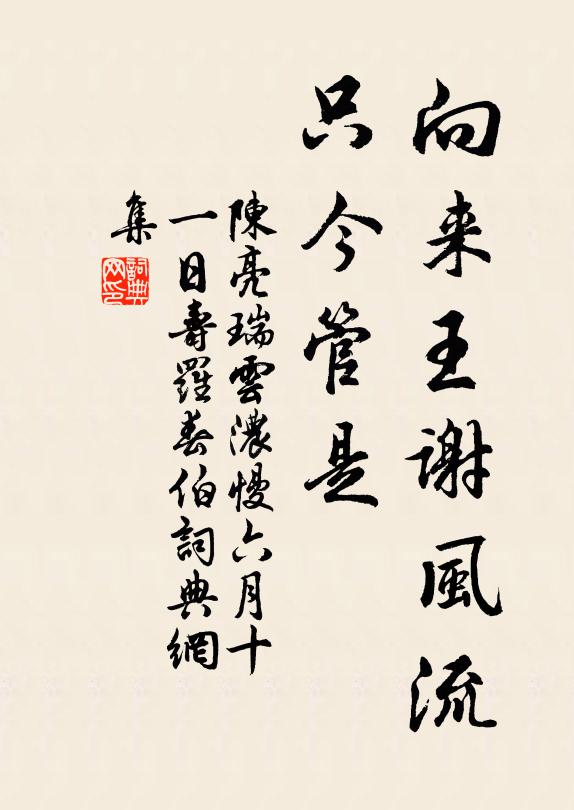 向来王謝風流
只今管是
陳亮瑞雲濃慢六月十
一日壽羅春伯詞典網
集
詞典
网印